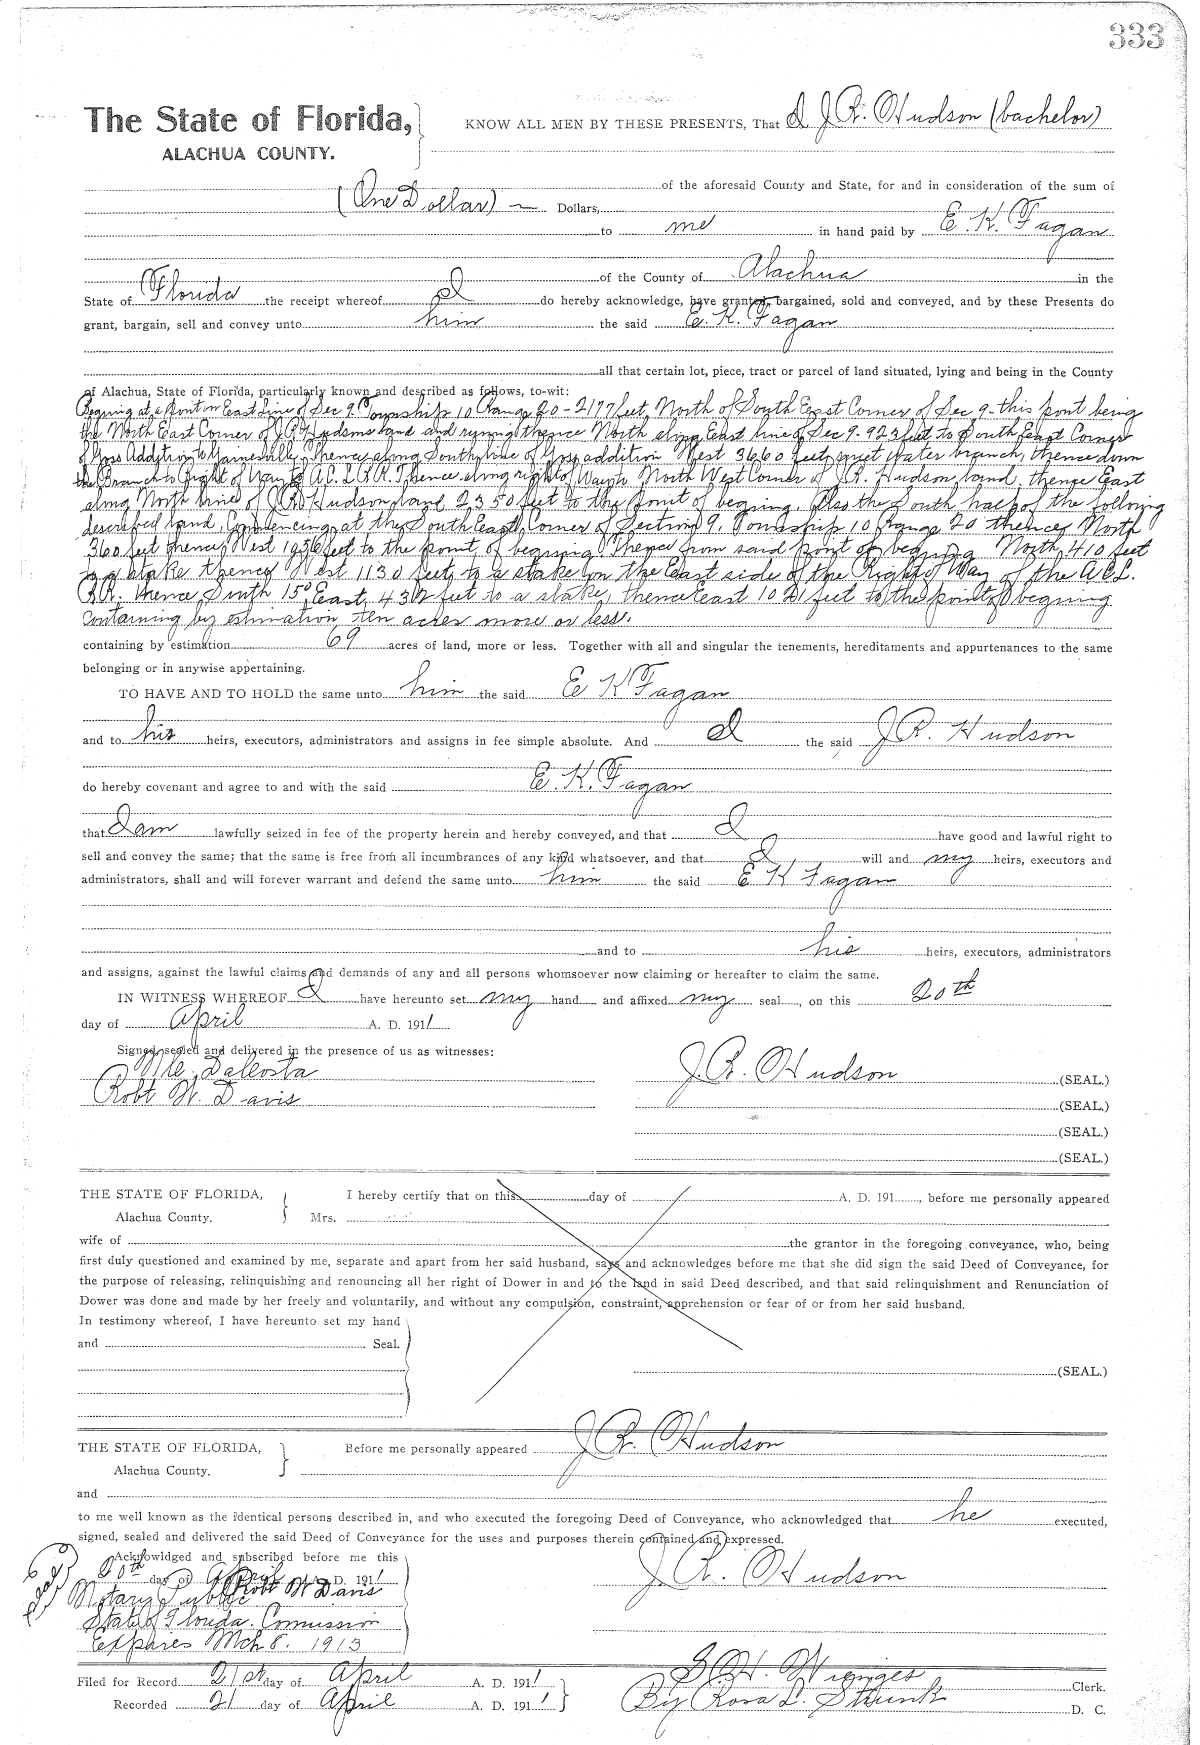 333
The State of Florida,
ALACHUA COUNTY.
KNOW ALL MEN BY THESE PRESENTS, That I J.R. Hudson (bachelor)
of the aforesaid County and State, for and in consideration of the sum of
(One Dollar) Dollars,
to me in hand paid by E. K. Fagan
of the County of Alachua in the
State of Florida the receipt whereof I do hereby acknowledge, have granted, bargained, sold and conveyed, and by these Presents do
grant, bargain, sell and convey unto him the said E. K. Fagan
all that certain lot, piece, tract or parcel of land situated, lying and being in the County
of Alachua, State of Florida, particularly known and described as follows, to-wit:
Begining at a Point on East Line of Sec 9 Township 10 Range 20 - 2177 feet, North of South East Corner of Sec 9 - this point being
the North East Corner of J.R. Hudsons land and runing thence North along East line of Sec 9 - 923 feet, to South East Corner
of Goss Addition to Gainesville, Thence along South line of Goss addition West 3660 feet to water branch, thence down
the Branch to Right of Way of A.C.L.R.R. Thence along right of Way to North West Corner of J.R. Hudson land, thence East
along North line of J.R. Hudson land 2350 feet to the Point of begining. Also the South half of the following
described land, Commencing at the South East Corner of Section 9, Township 10 Range 20 thence North
360 feet thence West feet to the point of begining Thence from said point of begining North 410 feet
to a stake thence West 1130 feet, to a stake on the East side of the Right of Way of the A.C.L.
R.R. Thence South 15° East, 432 feet to a stake, thence East feet to the point of begining
containing by estimation ten acres more or less.
containing by estimation 69 acres of land, more or less. Together with all and singular the tenements, hereditaments and appurtenances to the same
belonging or in anywise appertaining.
TO HAVE AND TO HOLD the same unto him the said E K Fagan
and to his heirs, executors, administrators and assigns in fee simple absolute. And I the said J.R. Hudson
do hereby covenant and agree to and with the said E. K. Fagan
that I am lawfully seized in fee of the property herein and hereby conveyed, and that I have good and lawful right to
sell and convey the same; that the same is free from all incumbrances of any kind whatsoever, and that I will and my heirs, executors and
administrators, shall and will forever warrant and defend the same unto him the said E K Fagan
and to his heirs, executors, administrators
and assigns, against the lawful claims and demands of any and all persons whomsoever now claiming or hereafter to claim the same.
IN WITNESS WHEREOF I have hereunto set my hand and affixed my seal, on this 20th
day of April A. D. 1911
Signed, sealed and delivered in the presence of us as witnesses:
DaCosta
Robt W. Davis
J.R. Hudson (SEAL.)
(SEAL.)
(SEAL.)
(SEAL.)
THE STATE OF FLORIDA,
Alachua County.
I hereby certify that on this day of A. D. 191, before me personally appeared
Mrs.
wife of the grantor in the foregoing conveyance, who, being
first duly questioned and examined by me, separate and apart from her said husband, says and acknowledges before me that she did sign the said Deed of Conveyance, for
the purpose of releasing, relinquishing and renouncing all her right of Dower in and to the land in said Deed described, and that said relinquishment and Renunciation of
Dower was done and made by her freely and voluntarily, and without any compulsion, constraint, apprehension or fear of or from her said husband.
In testimony whereof, I have hereunto set my hand
and Seal.
(SEAL.)
THE STATE OF FLORIDA,
Alachua County.
Before me personally appeared J.R. Hudson
and
to me well known as the identical persons described in, and who executed the foregoing Deed of Conveyance, who acknowledged that he executed,
signed, sealed and delivered the said Deed of Conveyance for the uses and purposes therein contained and expressed.
Acknowledged and subscribed before me this
20th day of April A. D. 1911
Robt W Davis
Notary Public
State of Florida. Comission
Expires Mch 8. 1913
J.R. Hudson
Filed for Record 21st day of April A. D. 1911
Clerk.
Recorded 21 day of April A. D. 1911
By Rosa L. Strunk D. C.